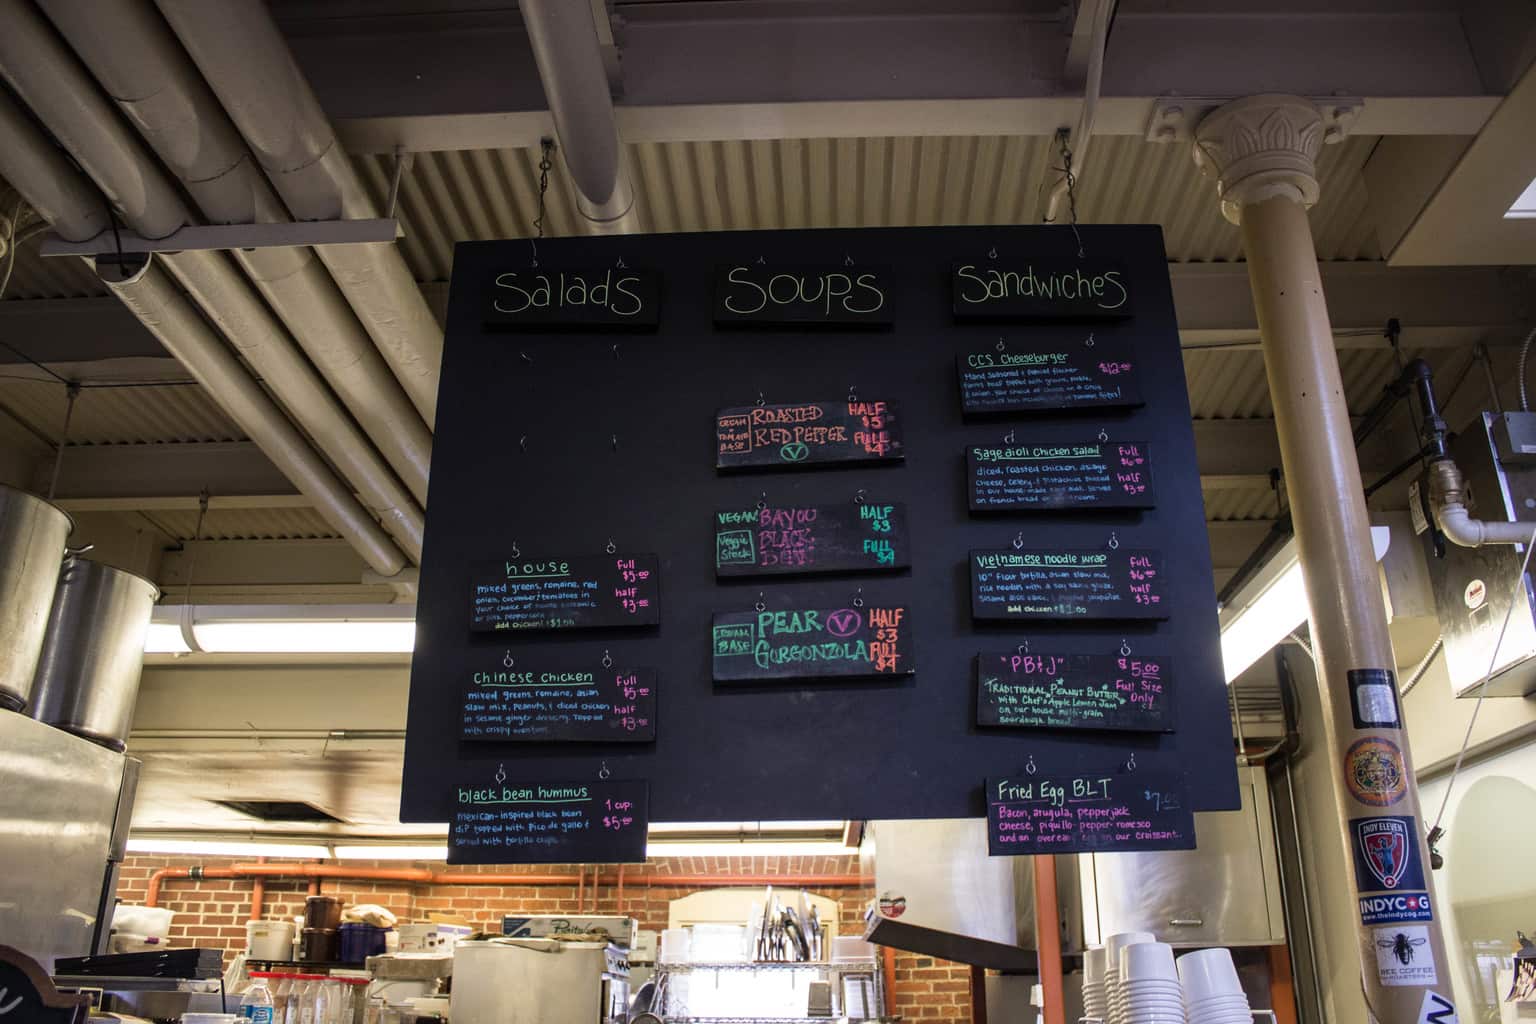 Salads
house
Full
$5.00
half
$3.00
mixed greens, romaine, red
onion, cucumber, tomatoes in
your choice of
add chicken! $1.00
chinese chicken
Full
$5.00
half
$3.00
mixed greens, romaine, asian
slaw mix, peanuts, & diced chicken
in sesame ginger dressing. Topped
with crispy wontons
black bean hummus
1 cup:
$5.00
mexican-inspired black bean
dip topped with pico de gallo &
served with tortilla chips
Soups
CREAM
TOMATO
BASE
ROASTED
RED PEPPER
V
HALF
$3
FULL
$4
VEGAN!
Veggie
Stock
BAYOU
BLACK
HALF
$3
FULL
$4
CREAM
BASE
PEAR V
GORGONZOLA
HALF
$3
FULL
$4
Sandwiches
CCS Cheeseburger
$12.00
Hand seasoned &
farms beef topped with greens, pickle,
& onion. your choice of cheese on a
Sage aioli chicken salad
Full
$6.00
half
$3.00
diced, roasted chicken, asiago
cheese, celery, & pistachios
in our house-made
on french bread
Vietnamese noodle wrap
Full
$6.00
half
$3.00
10" flour tortilla, asian slaw mix,
rice noodles with a soy glaze,
sesame aioli sauce, & pickled jalapeños
add chicken +$1.00
"PB&J"
$5.00
Full Size
Only
Traditional Peanut Butter
with Chef's Apple Lemon Jam
on our house multi-grain
sourdough bread!
Fried Egg BLT
$7.00
Bacon, arugula, pepperjack
cheese, piquillo-pepper-romesco
and an over easy egg on our croissant..
INDY ELEVEN
INDYCOG
www.theindycog.com
BEE COFFEE
ROASTERS